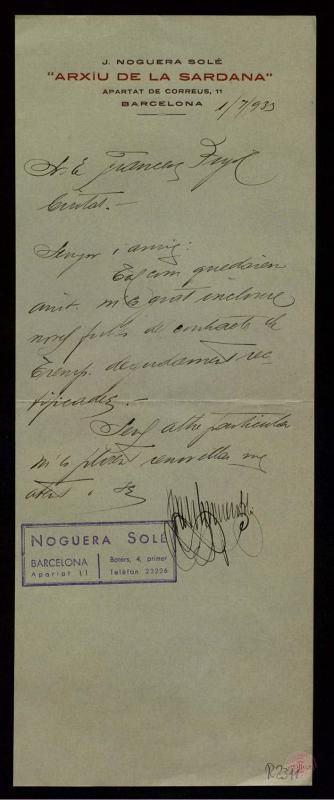 J. NOGUERA SOLÉ
"ARXÍU DE LA SARDANA"
APARTAT DE CORREUS, 11
BARCELONA 1/7/933
Sr. E. Francesc Pujol
Ciutat.—
Senyor i amic:
Tal com quedàrem
ahir m'és grat incloure
nous fulls de contracte de
Tremp degudament rec-
tificades.—
Sens altre particular
m'és plaent
NOGUERA SOLÉ
BARCELONA
Apartat 11
Boters, 4, primer
Telèfon 23226
R2341